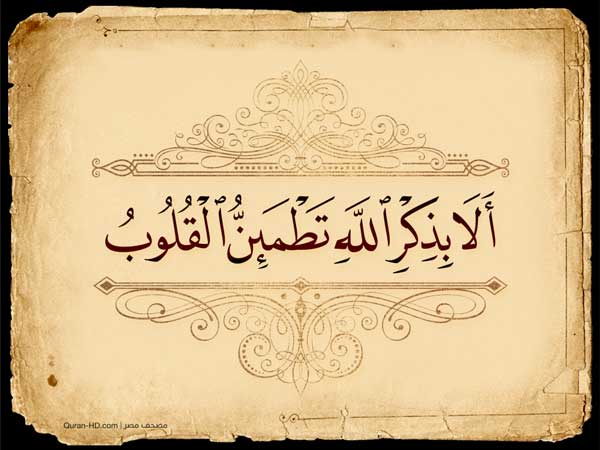 أَلَا بِذِكْرِ ٱللَّهِ تَطْمَئِنُّ ٱلْقُلُوبُ
مصحف مصر | Quran-HD.com